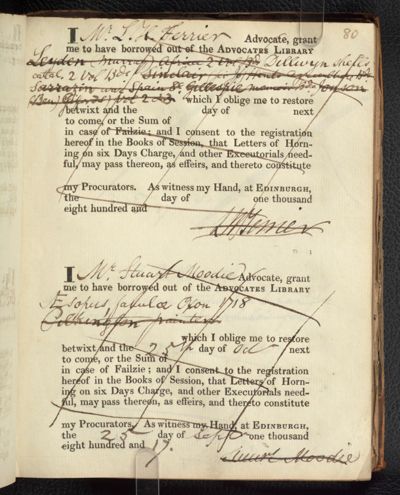 80
I Mr L. H. Ferrier Advocate, grant
me to have borrowed out of the ADVOCATES LIBRARY
Leyden Murray Africa 2 vol 8º Dillwyn Shells
catal. 2 vol 8º Sinclair
Sarrazin Spain 8º Gillespie Jonson
(Ben) which I oblige me to restore
betwixt and the day of next
to come, or the Sum of
in case of Failzie; and I consent to the registration
hereof in the Books of Session, that Letters of Horn-
ing on six Days Charge, and other Executorials need-
ful, may pass thereon, as effeirs, and thereto constitute
my Procurators. As witness my Hand, at EDINBURGH,
the day of one thousand
eight hundred and
Ferrier
I Mr Stuart Moodie Advocate, grant
me to have borrowed out of the ADVOCATES LIBRARY
Æsopus, fabulæ Oxon 1718
Pilkington painters
which I oblige me to restore
betwixt and the 25th day of Oct next
to come, or the Sum of
in case of Failzie; and I consent to the registration
hereof in the Books of Session, that Letters of Horn-
ing on six Days Charge, and other Executorials need-
ful, may pass thereon, as effeirs, and thereto constitute
my Procurators. As witness my Hand, at EDINBURGH,
the 25 day of Sept one thousand
eight hundred and 17.
Stuart Moodie